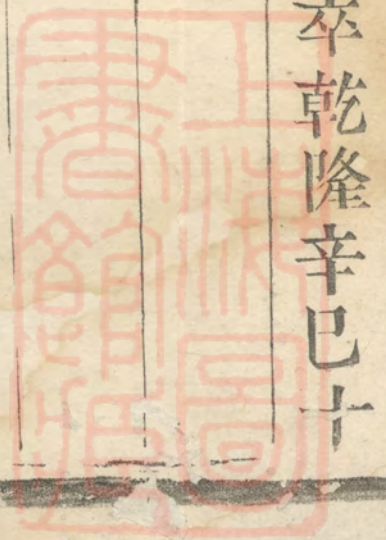 卒乾隆辛巳十
上海圖
書館藏